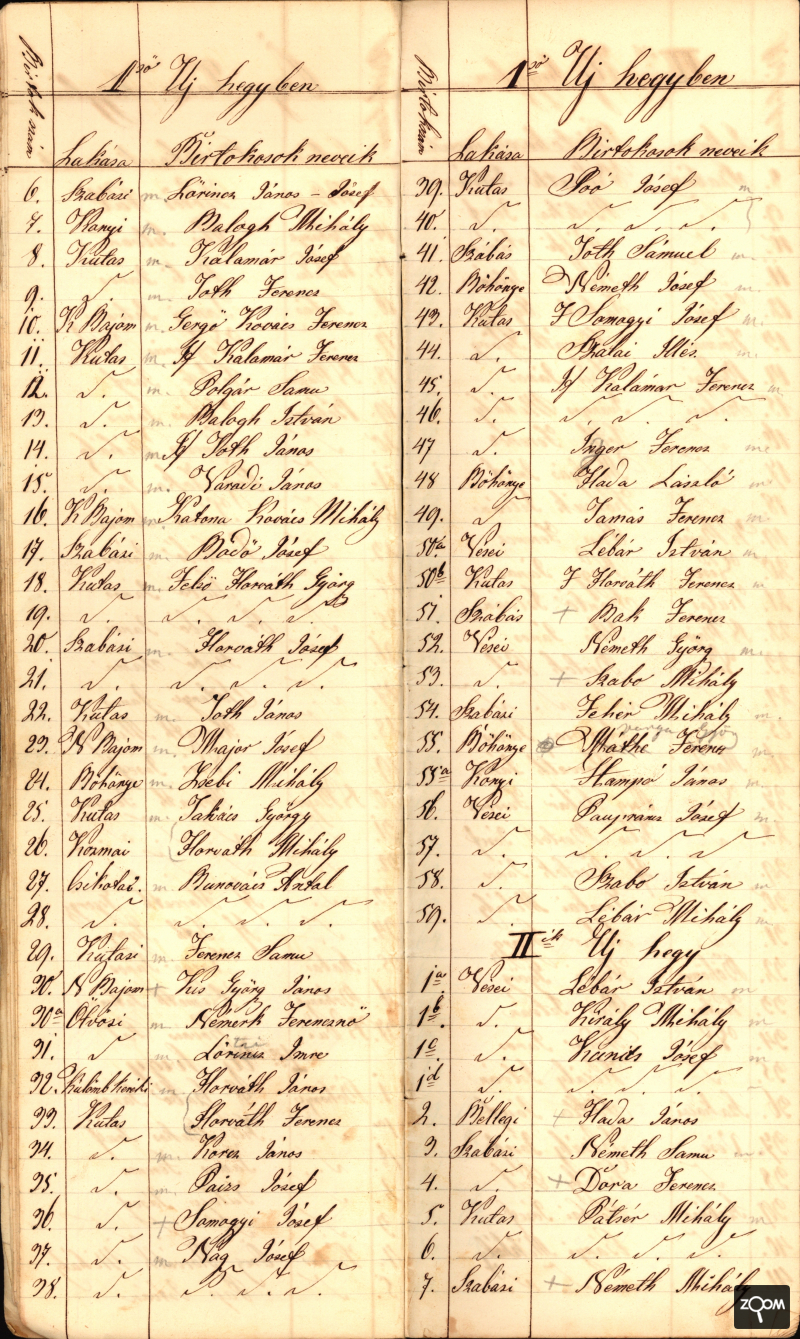 Birtok szám
1ső Uj hegyben
Lakása Birtokosok neveik
6. Szabási m. Lörincz János - Jósef
7. Konyi m. Balogh Mihály
8. Kutas m. Kalamár Jósef
9. „. m. Toth Ferencz
10. K Bajom m. Gergö Kovács Ferencz
11. Kutas m. If Kalamár Ferencz
12. „. m. Polgár Samu
13. „. m. Balogh István
14. „. m. If Toth János
15. „. m. Váradi János
16. K Bajom m Katona Kovács Mihály
17. Szabási m. Bodö Jósef
18. Kutas m. Felsö Horváth Györg
19. „. „. „. „.
20. Szabási m. Horváth Jósef
21. „. „. „. „.
22. Kutas m. Toth János
23. N Bajom m. Major Jósef
24. Böhönye m. Zsebi Mihály
25. Kutas m. Takács György
26. Kozmai Horváth Mihály
27. Csikotai. m. Bunovács Antal
28. „. „. „. „.
29. Kutasi m. Ferencz Samu
30. N Bajom + Kis Györg János
30a Ötvösi m. Németh Ferencznö
31. „ m. Lörincz Imre
32. m. Horváth János
33. Kutas Horváth Ferencz
34. „. m. Korcz János
35. „. m. Paizs Jósef
36. „. + Somogyi Jósef
37. „. m Nag Jósef
38. „. „. „. „.
Birtokszám
1ső Uj hegyben
Lakása Birtokosok neveik
39. Kutas Soó Jósef m
40. „. „. „. „.
41. Szábás Toth Sámuel m.
42. Böhönye Németh Jósef m.
43. Kutas F Somogyi Jósef m
44. „. Szalai Illés m.
45. „. If Kalámar Ferencz m
46. „. „. „. „.
47 „. Inger Ferencz m
48 Böhönye Hada László m
49. „ Tamás Ferencz m
50a. Vései Lébár István m
50b. Kutas F Horváth Ferencz m
51. Szábás + Bak Ferencz
52. Vései Németh Györg m.
53. „. + Szabo Mihály
54. Szabási Fehér Mihály m.
55. Böhönye Máthé Ferencz m
55a Konyi Stampó János m
56. Vései Jósef m
57. „. „. „. „.
58. „. Szabo István m
59. „ Lébár Mihály m
IIik Uj hegy
1a Vései Lébár István m
1b „. Király Mihály m
1c „. Kunits Jósef m
1d „. „. „. „.
2. Böllegi + Háda János
3. Szabási Németh Samu m
4. „. + Dóra Ferencz
5. Kutas Pátsér Mihály m
6. „. „. „. „.
7. Szabási + Németh Mihály
ZOOM